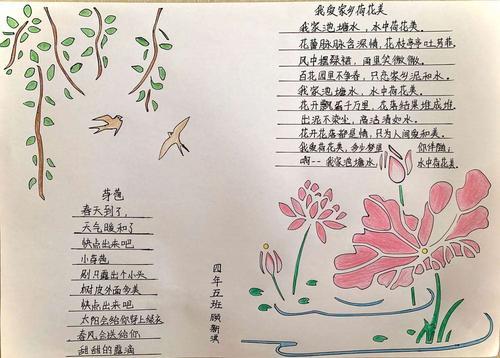 我爱家乡荷花美
我家池塘水，水中荷花美。
花蕾脉脉含深情，花枝亭亭吐芳菲。
风中摆绿裙，雨里笑微微。
百花园里不争春，只恋家乡泥和水。
我家池塘水，水中荷花美。
花开飘香千万里，花落结果堆成堆。
出泥不染尘，高洁清如水。
花开花落都是情，只为人间爱和美。
我爱荷花美，多少梦里你伴随；
啊--我家池塘水，水中荷花美。
芽苞
春天到了，
天气暖和了
快点出来吧
小芽苞
刚只露出个小头
树皮外面多美
快点出来吧
太阳会给你穿上绿衣
春风会送给你
甜甜的露滴
四年五班 顾新淇